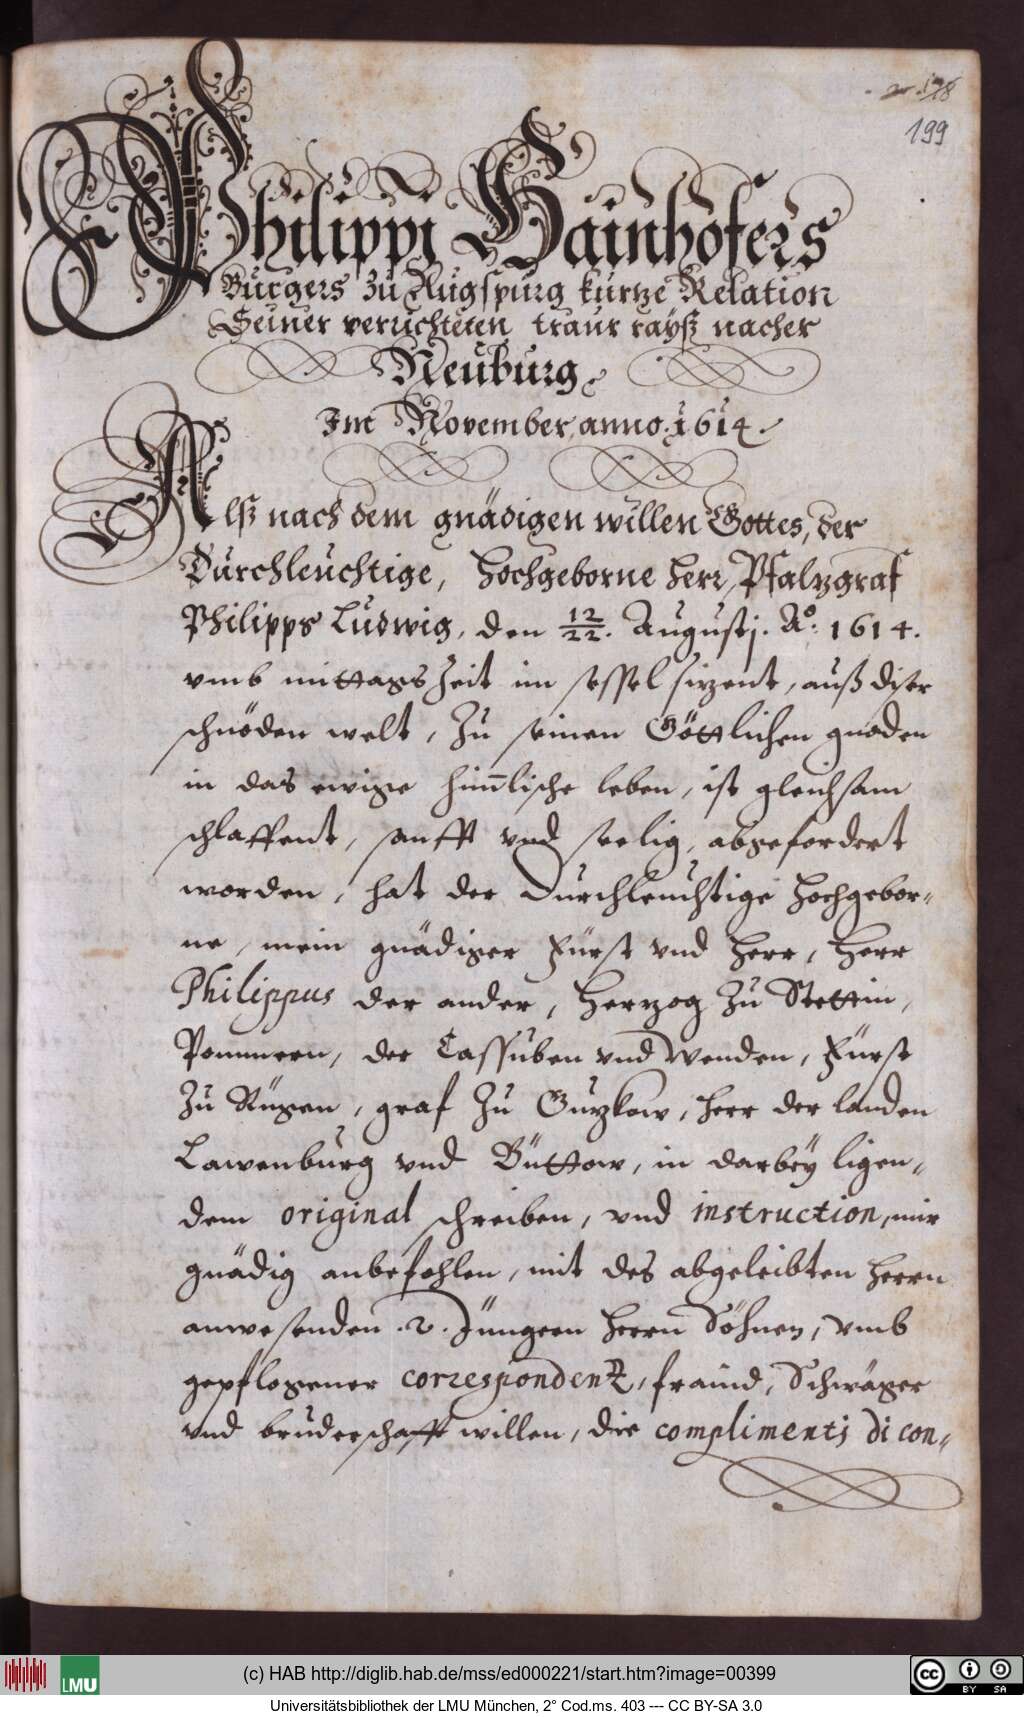 199
Philippi Hainhofers
Burgers zu Augspurg kurtze Relation
Seiner verrichteten traur rayß nacher
Neuburg
Im November anno. 1614.
Alß nach dem gnädigen willen Gottes, der
Durchleuchtige, Hochgeborne herr Pfalzgraf
Philipps Ludwig, den 12/22. Augustj. Aº: 1614.
vmb mittags Zeit im sessel sizent, auß diser
schnöden welt, Zu seinen Göttlichen gnaden
in das ewige him̄lische leben, ist gleichsam
schlaffent, sanfft vnd seelig, abgefordert
worden, hat der Durchleuchtige hochgebor-
ne, mein gnädiger Fürst vnd Herr, Herr
Philippus der ander, Herzog Zu Stettin,
Pommern, der Cassuben vnd Wenden, Fürst
Zu Rügen, graf Zu Guzkow, herr der landen
Lawenburg vnd Büttow, in darbey ligen-
dem original schreiben, vnd instruction, mir
gnädig anbefohlen, mit des abgeleibten herrn
anwesenden .2. Jüngern herrn Söhnen, vmb
gepflogener correspondentz, fraind, Schwäger
vnd bruderschafft willen, die complimentj di con-
(c) HAB http://diglib.hab.de/mss/ed000221/start.htm?image=00399
LMU
cc BY SA
Universitätsbibliothek der LMU München, 2° Cod.ms. 403 --- CC BY-SA 3.0